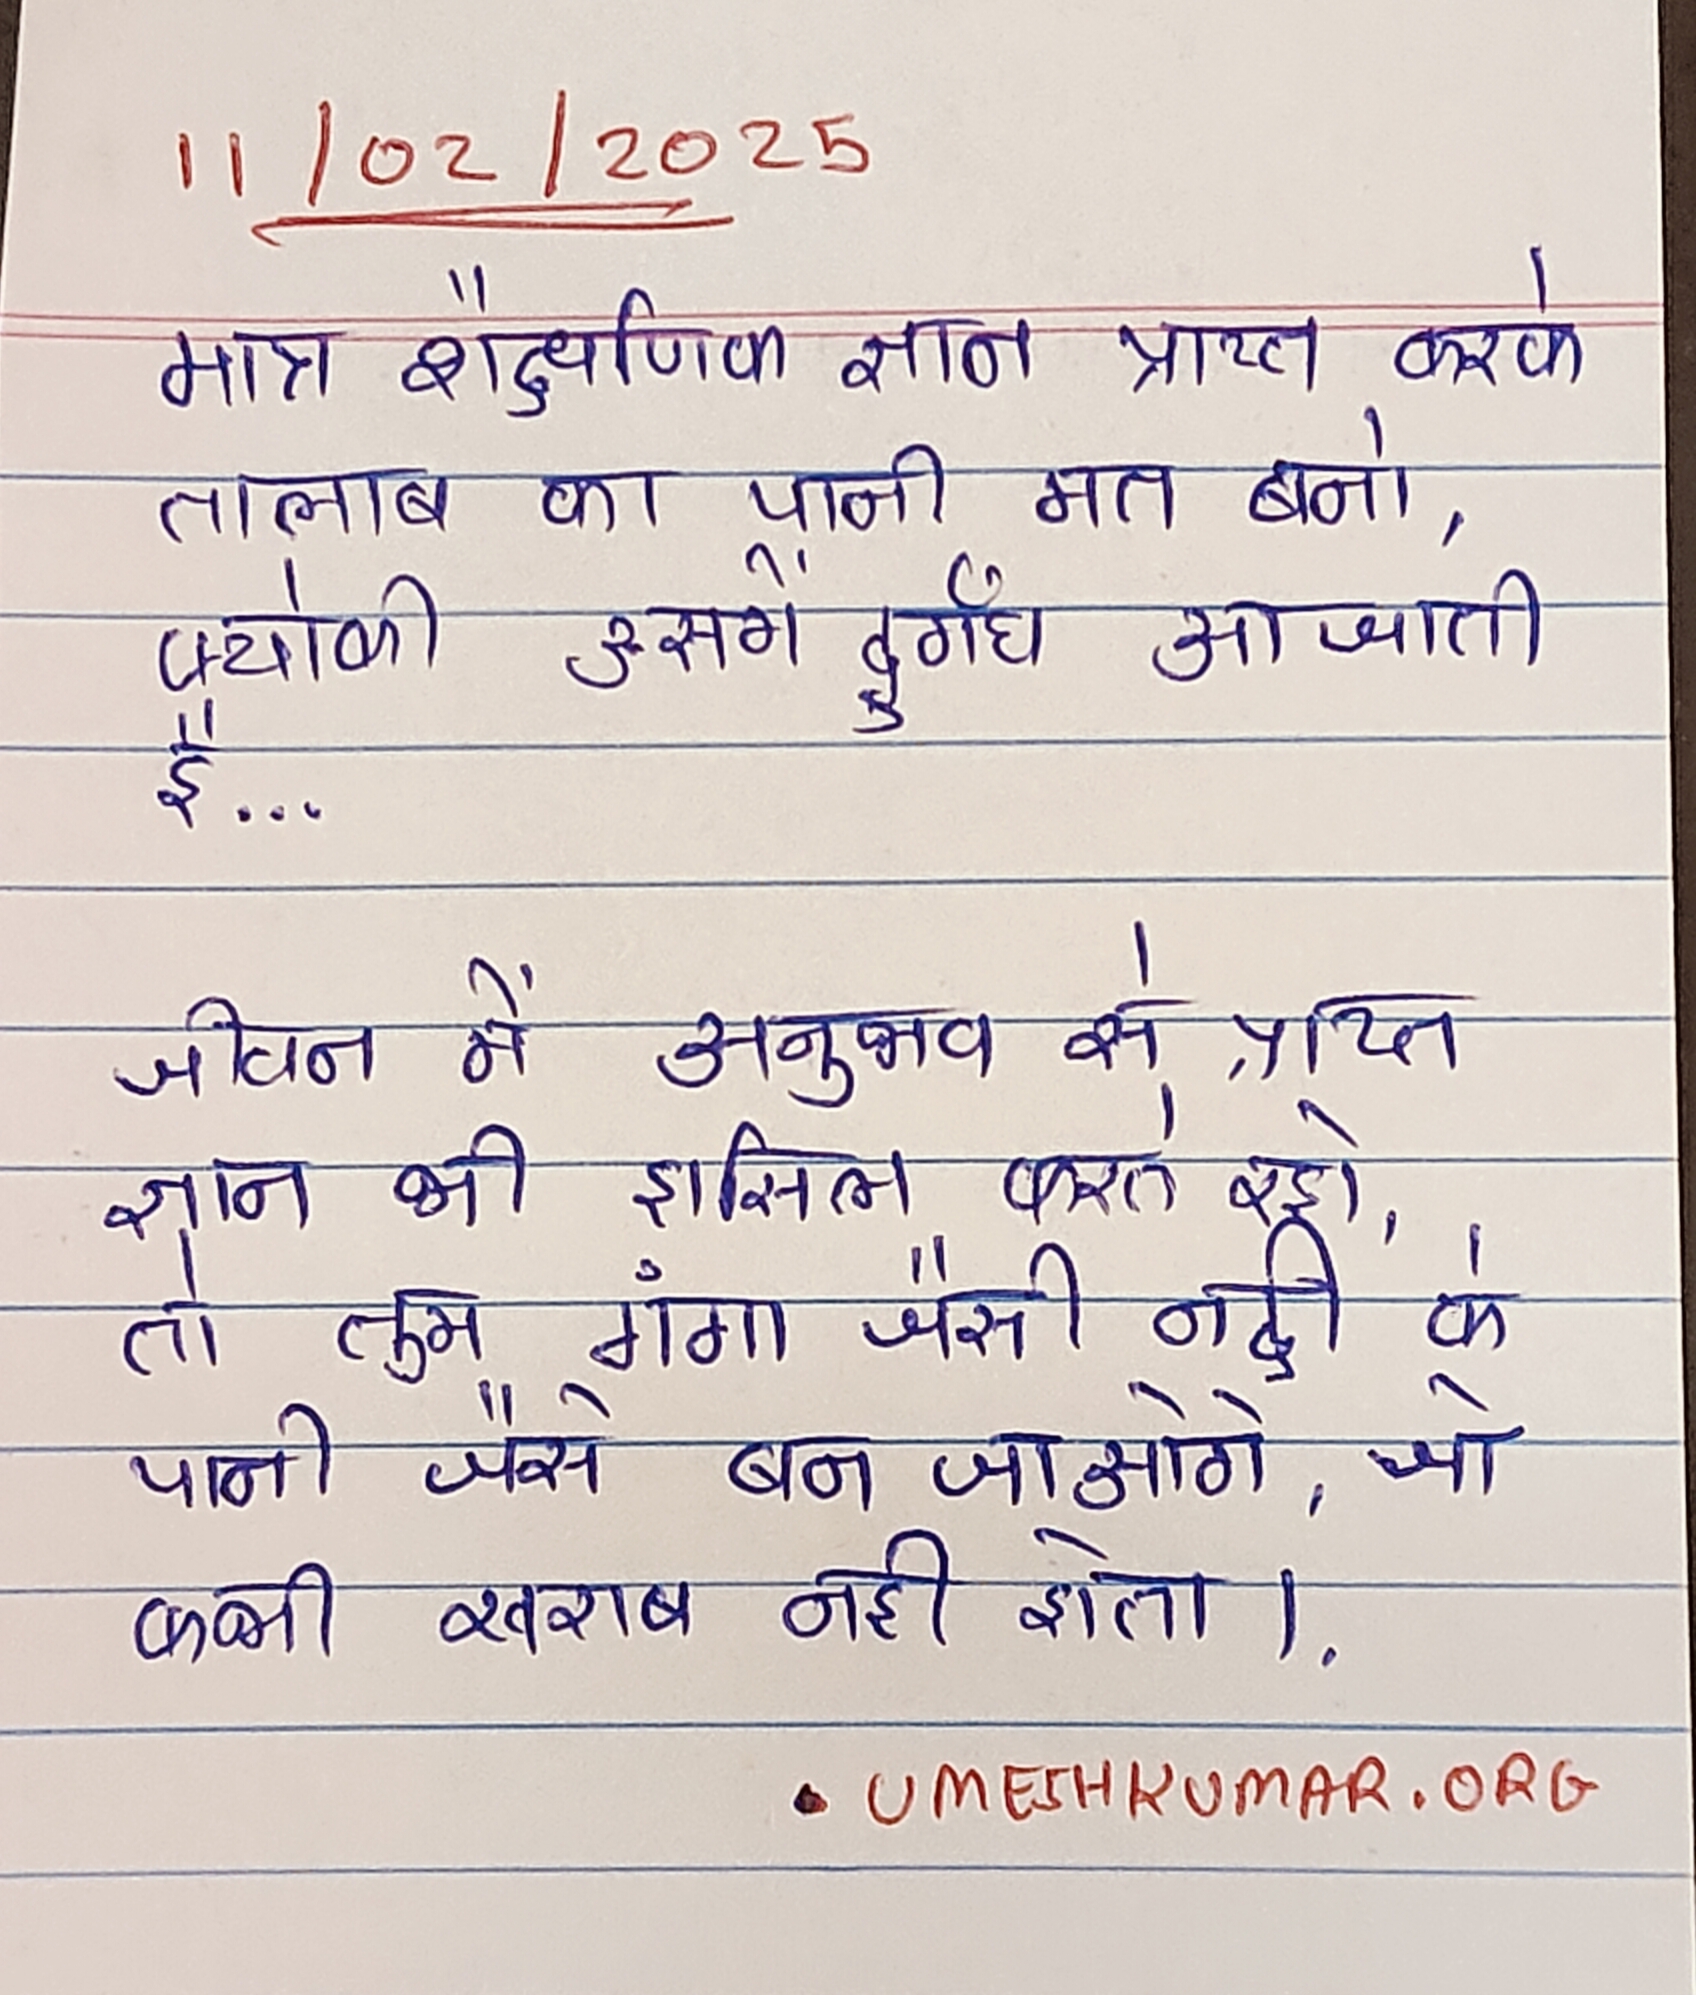 11/02/2025
मात्र शैद्धणिक ज्ञान प्राप्त करके
तालाब का पानी मत बनो,
क्योकी उसमे दुर्गंध आ जाती
है...
जीवन में अनुभव से प्राप्त
ज्ञान भी हासिल करते रहो,
तो तुम गंगा जैसी नदी के
पानी जैसे बन जाओगे, जो
कभी खराब नही होता।.
• UMESHKUMAR.ORG